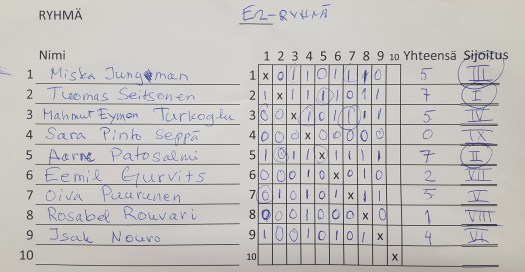 RYHMÄ E2-RYHMÄ
Nimi 1 2 3 4 5 6 7 8 9 10 Yhteensä Sijoitus
1 Miska Jungman 1 x 0 1 1 0 1 1 1 0 5 III
2 Tuomas Seitsonen 2 1 x 1 1 1 1 0 1 1 7 I
3 Mahmut Eyman Turkoglu 3 0 0 x 1 0 1 1 1 1 5 IV
4 Sara Pinto Seppä 4 0 0 0 x 0 0 0 0 0 0 IX
5 Aarne Patosalmi 5 1 0 1 1 x 1 1 1 1 7 II
6 Eemil Gurvits 6 0 0 0 1 0 x 0 1 0 2 VII
7 Oiva Puurunen 7 0 1 0 1 0 1 x 1 1 5 V
8 Rosabel Rouvari 8 0 0 0 1 0 0 0 x 0 1 VIII
9 Isak Nouro 9 1 0 0 1 0 1 0 1 x 4 VI
10 10 x